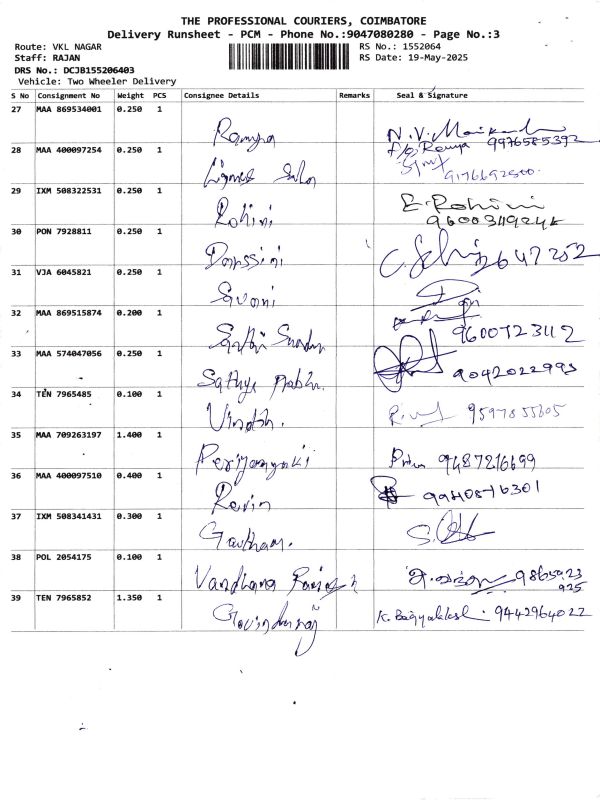 THE PROFESSIONAL COURIERS, COIMBATORE
Delivery Runsheet - PCM - Phone No.:9047080280 - Page No.:3
Route: VKL NAGAR RS No.: 1552064
Staff: RAJAN RS Date: 19-May-2025
DRS No.: DCJB155206403
Vehicle: Two Wheeler Delivery
S No Consignment No Weight PCS Consignee Details Remarks Seal & Signature
27 MAA 869534001 0.250 1
Ramya 9976585392
28 MAA 400097254 0.250 1
29 IXM 508322531 0.250 1
Rohini E. Rohini
30 PON 7928811 0.250 1
Darssini
31 VJA 6045821 0.250 1
32 MAA 869515874 0.200 1
9600723112
33 MAA 574047056 0.250 1
Sathya 9042022993
34 TEN 7965485 0.100 1
Vinoth.
35 MAA 709263197 1.400 1
Periyanayaki 9487216699
36 MAA 400097510 0.400 1
Kevin 9940876301
37 IXM 508341431 0.300 1
Gautham.
38 POL 2054175 0.100 1
Vandhana
39 TEN 7965852 1.350 1
Govindaraj 9442964022